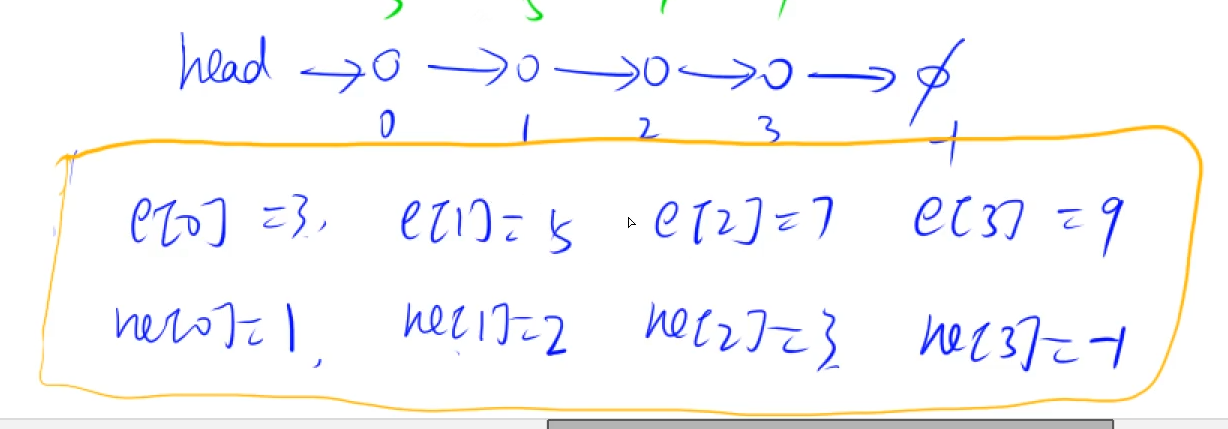 head → o → o → o → o → ∅
0 1 2 3 -1
e[0] = 3, e[1] = 5 e[2] = 7 e[3] = 9
ne[0] = 1, ne[1] = 2 ne[2] = 3 ne[3] = -1